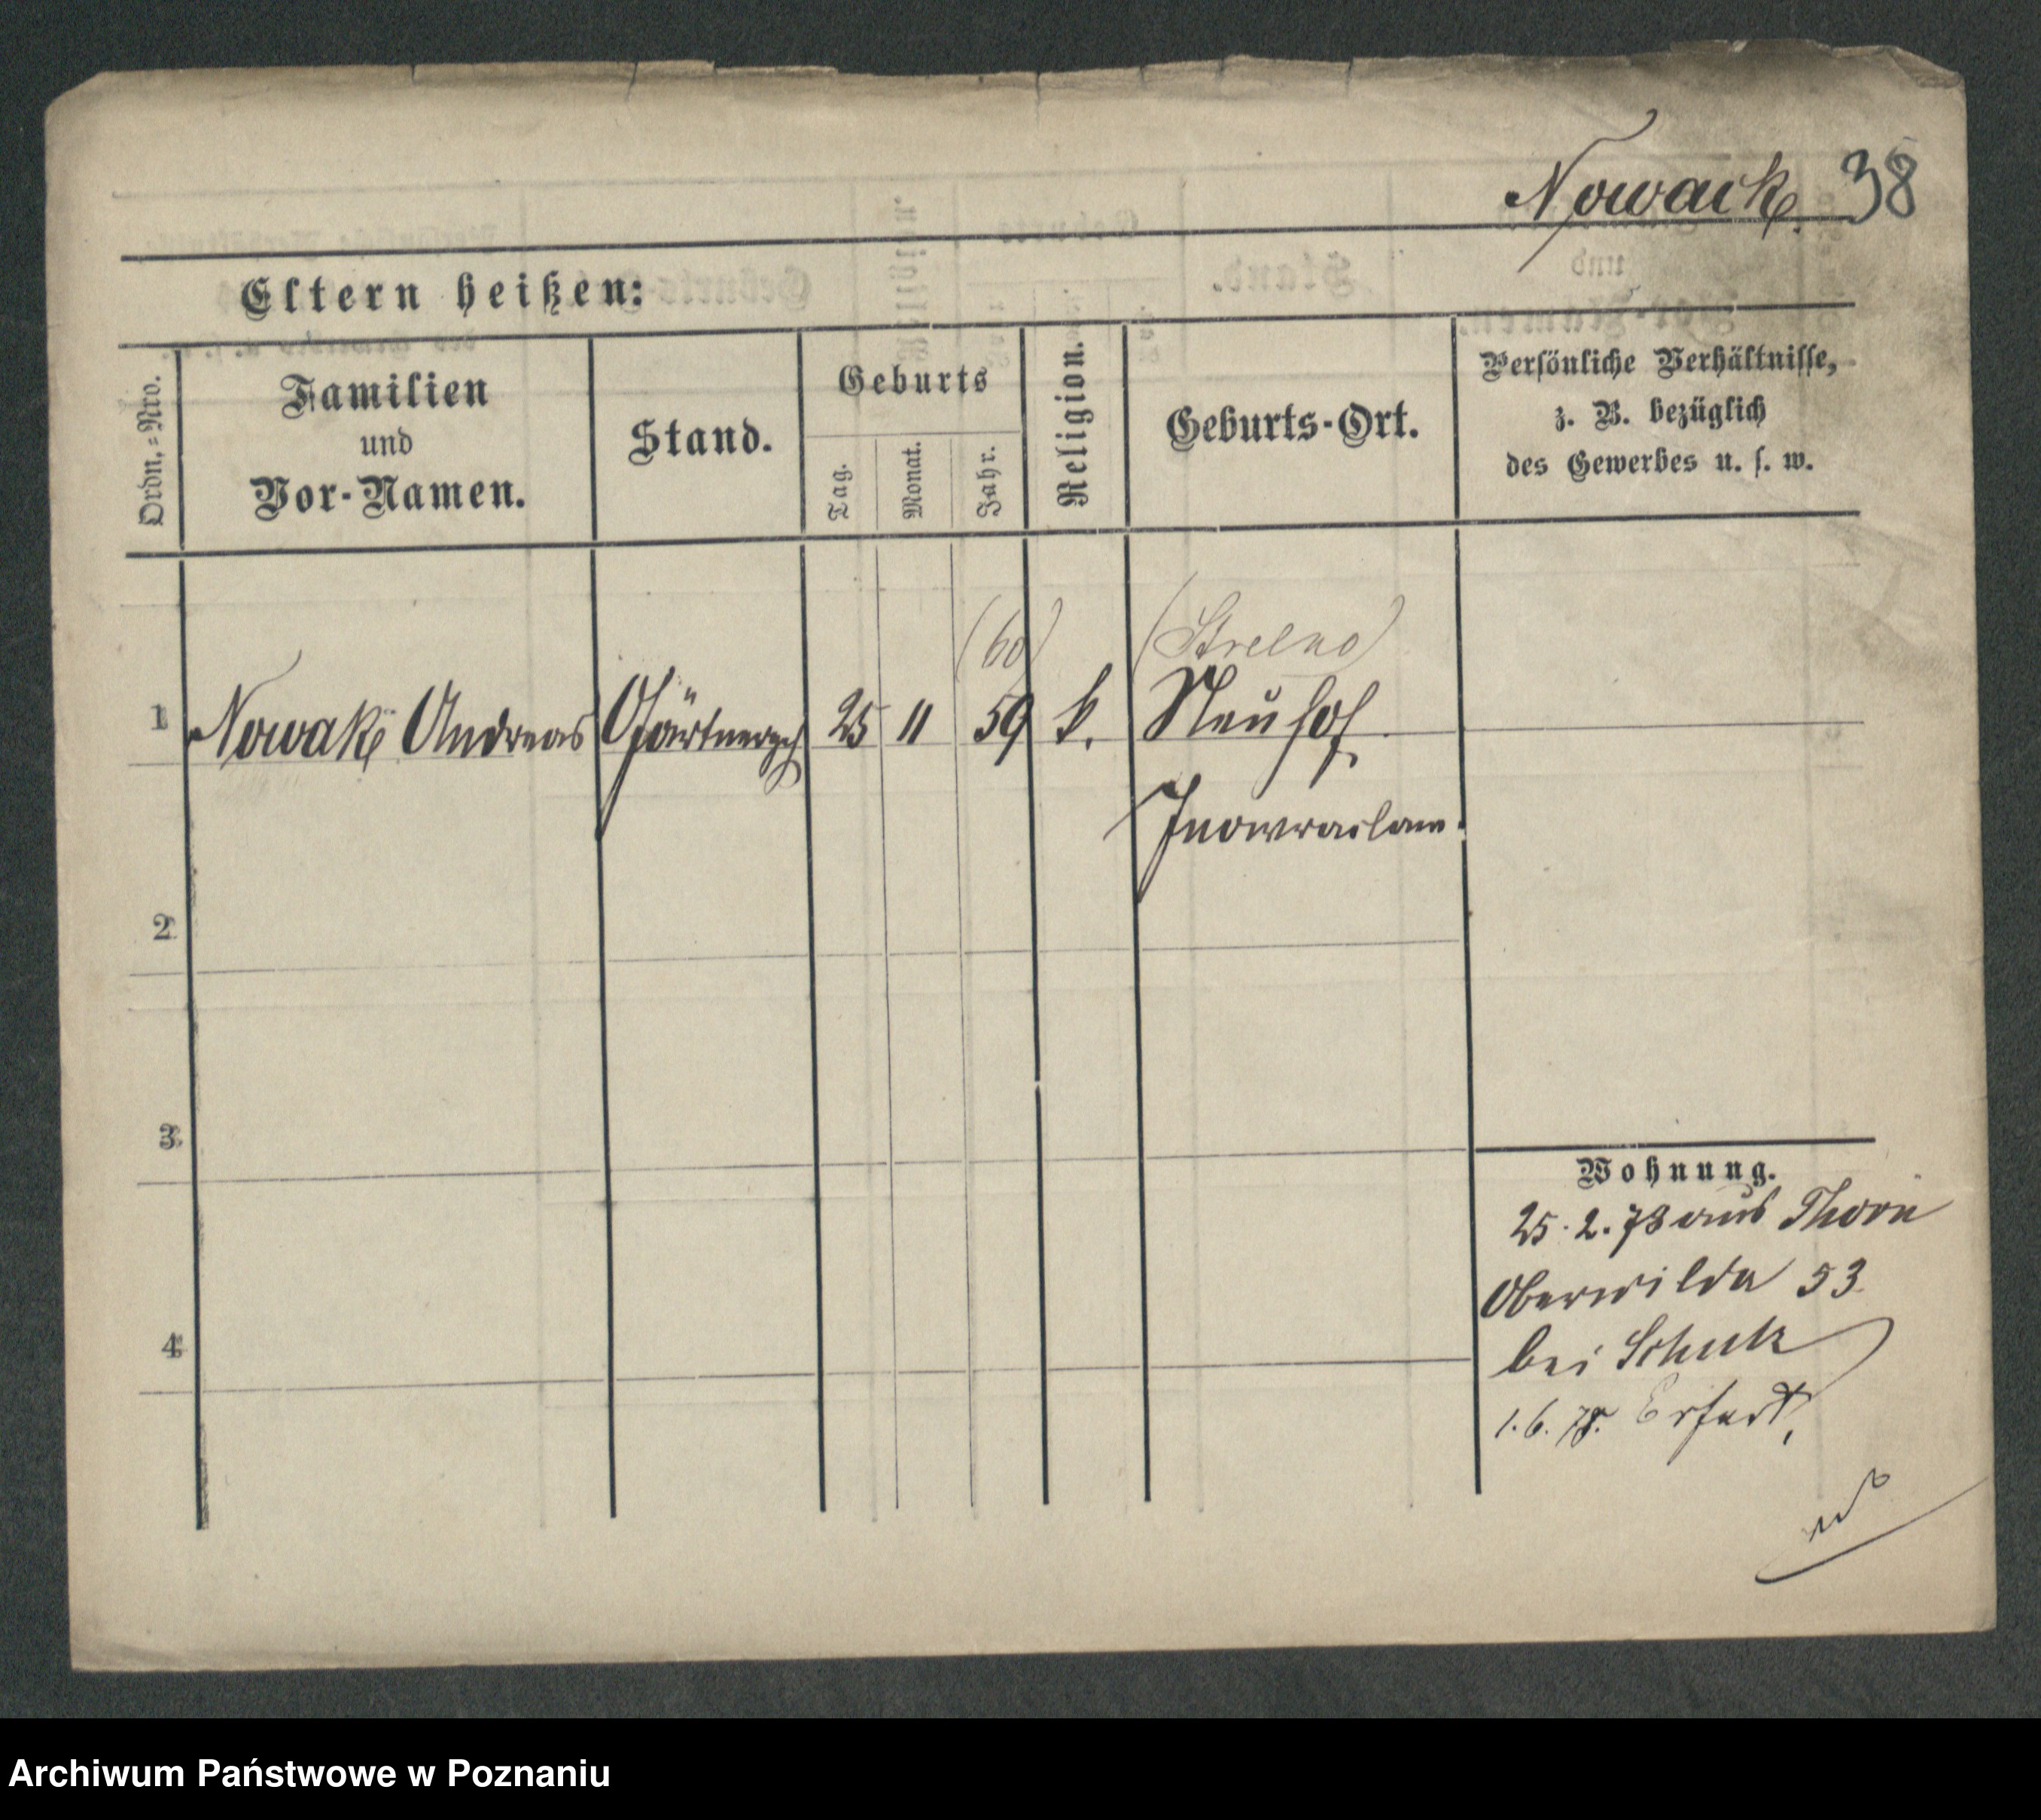 Nowack. 38
Eltern heißen:
Ordn.=Nro.
Familien
und
Vor-Namen.
Stand.
Geburts
Tag.
Monat.
Jahr.
Religion.
Geburts-Ort.
Persönliche Verhältnisse,
z. B. bezüglich
des Gewerbes u. s. w.
(60) (Strelno)
1 Nowak Andreas Gärtnergeh 25 11 59 k. Neuhof
Inowraclaw.
2
3
4
Wohnung.
25. 2. 78 aus Thorn
Oberwilda 53
bei
1. 6. 78. Erfurt,
Archiwum Państwowe w Poznaniu